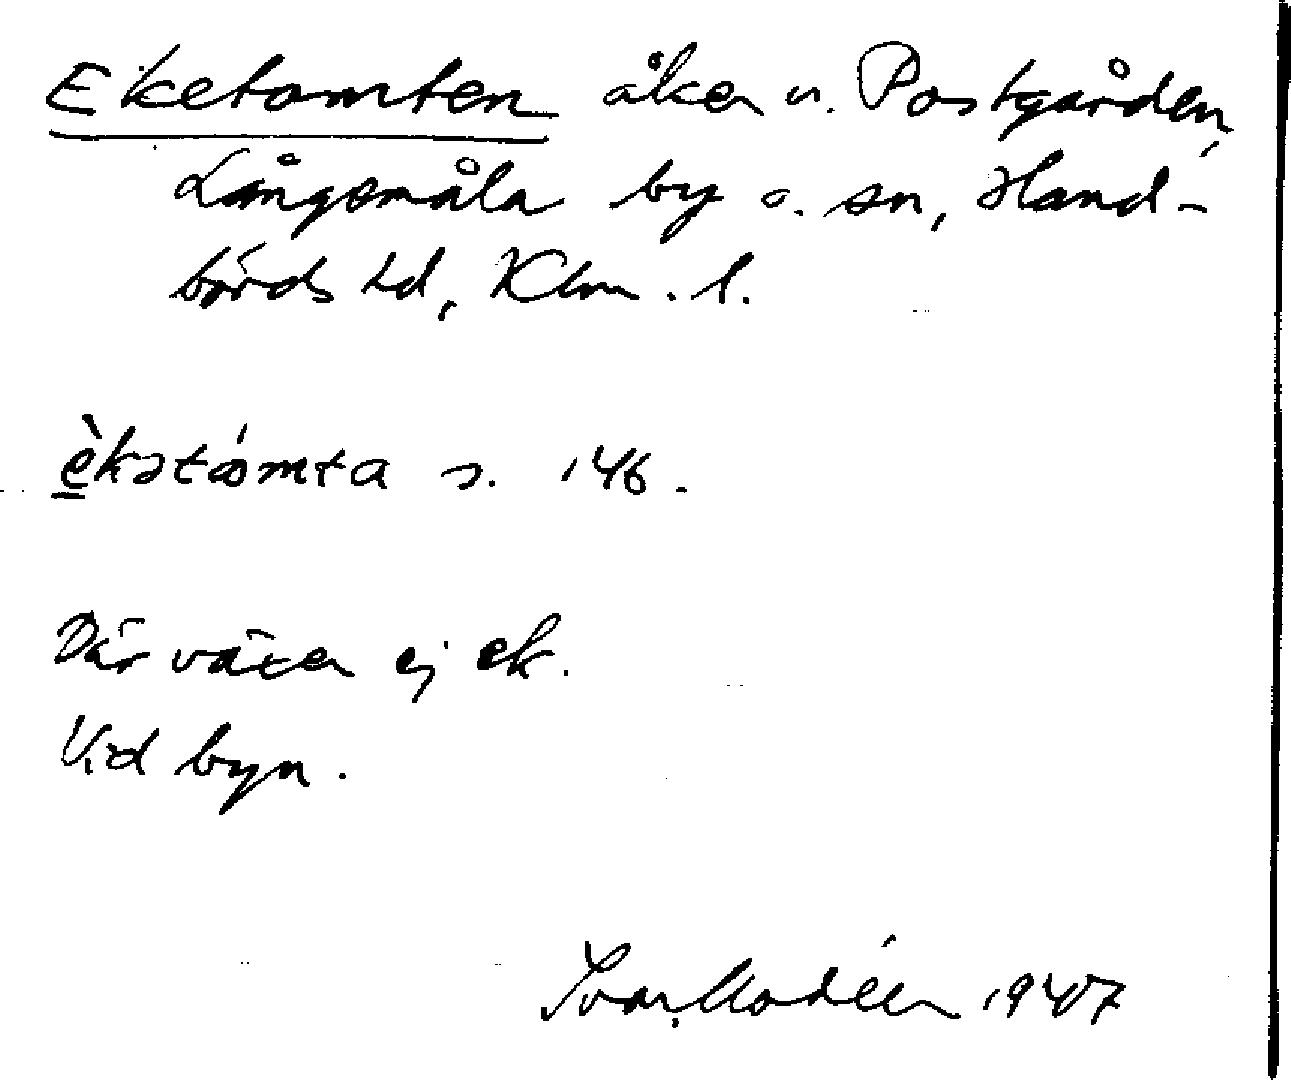 Eketomten åker u. Postgården,
Långemåla by o. sn, Hand-
börds hd, Klm. l.
èkətómta s. 146.
Där växer ej ek.
Vid byn.
Ivar Modéer 1947